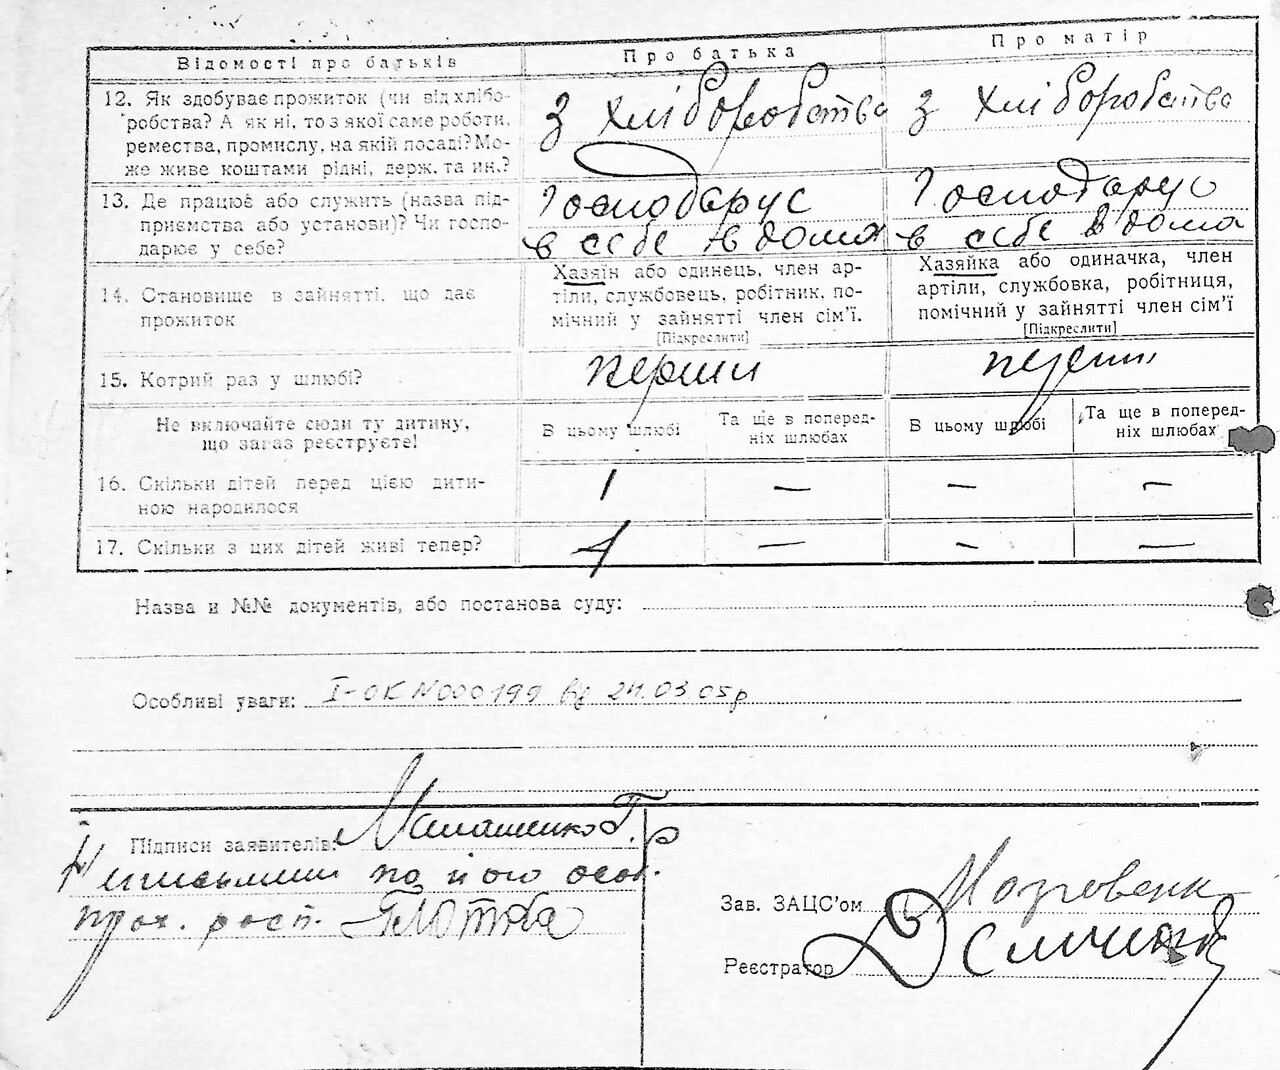 Відомості про батьків Про батька Про матір
12. Як здобуває прожиток (чи від хлібо-
робства? А як ні, то з якої саме роботи,
ремества, промислу, на якій посаді? Мо-
же живе коштами рідні, держ. та ин.?
З хліборобства З хліборобства
13. Де працює або служить (назва під-
приємства або установи)? Чи госпо-
дарює у себе?
Господарує Господарує
в себе в дома в себе в дома
14. Становище в зайнятті, що дає
прожиток
Хазяїн або одинець, член ар-
тіли, службовець, робітник, по-
мічний у зайнятті член сім'ї.
[Підкреслити]
Хазяйка або одиначка, член
артіли, службовка, робітниця,
помічний у зайнятті член сім'ї
[Підкреслити]
15. Котрий раз у шлюбі? перший перший
Не включайте сюди ту дитину,
що зараз реєструєте!
В цьому шлюбі
Та ще в поперед-
ніх шлюбах
В цьому шлюбі
Та ще в поперед-
ніх шлюбах
16. Скільки дітей перед цією дити-
ною народилося
1 — — —
17. Скільки з цих дітей живі тепер? 1 — — —
Назва и №№ документів, або постанова суду:
Особливі уваги: І-ОК N000199 від 24.03.05р
Підписи заявителів: Малашенко Г.
по його особ.
прох. росп.
Зав. ЗАЦС'ом
Реєстратор